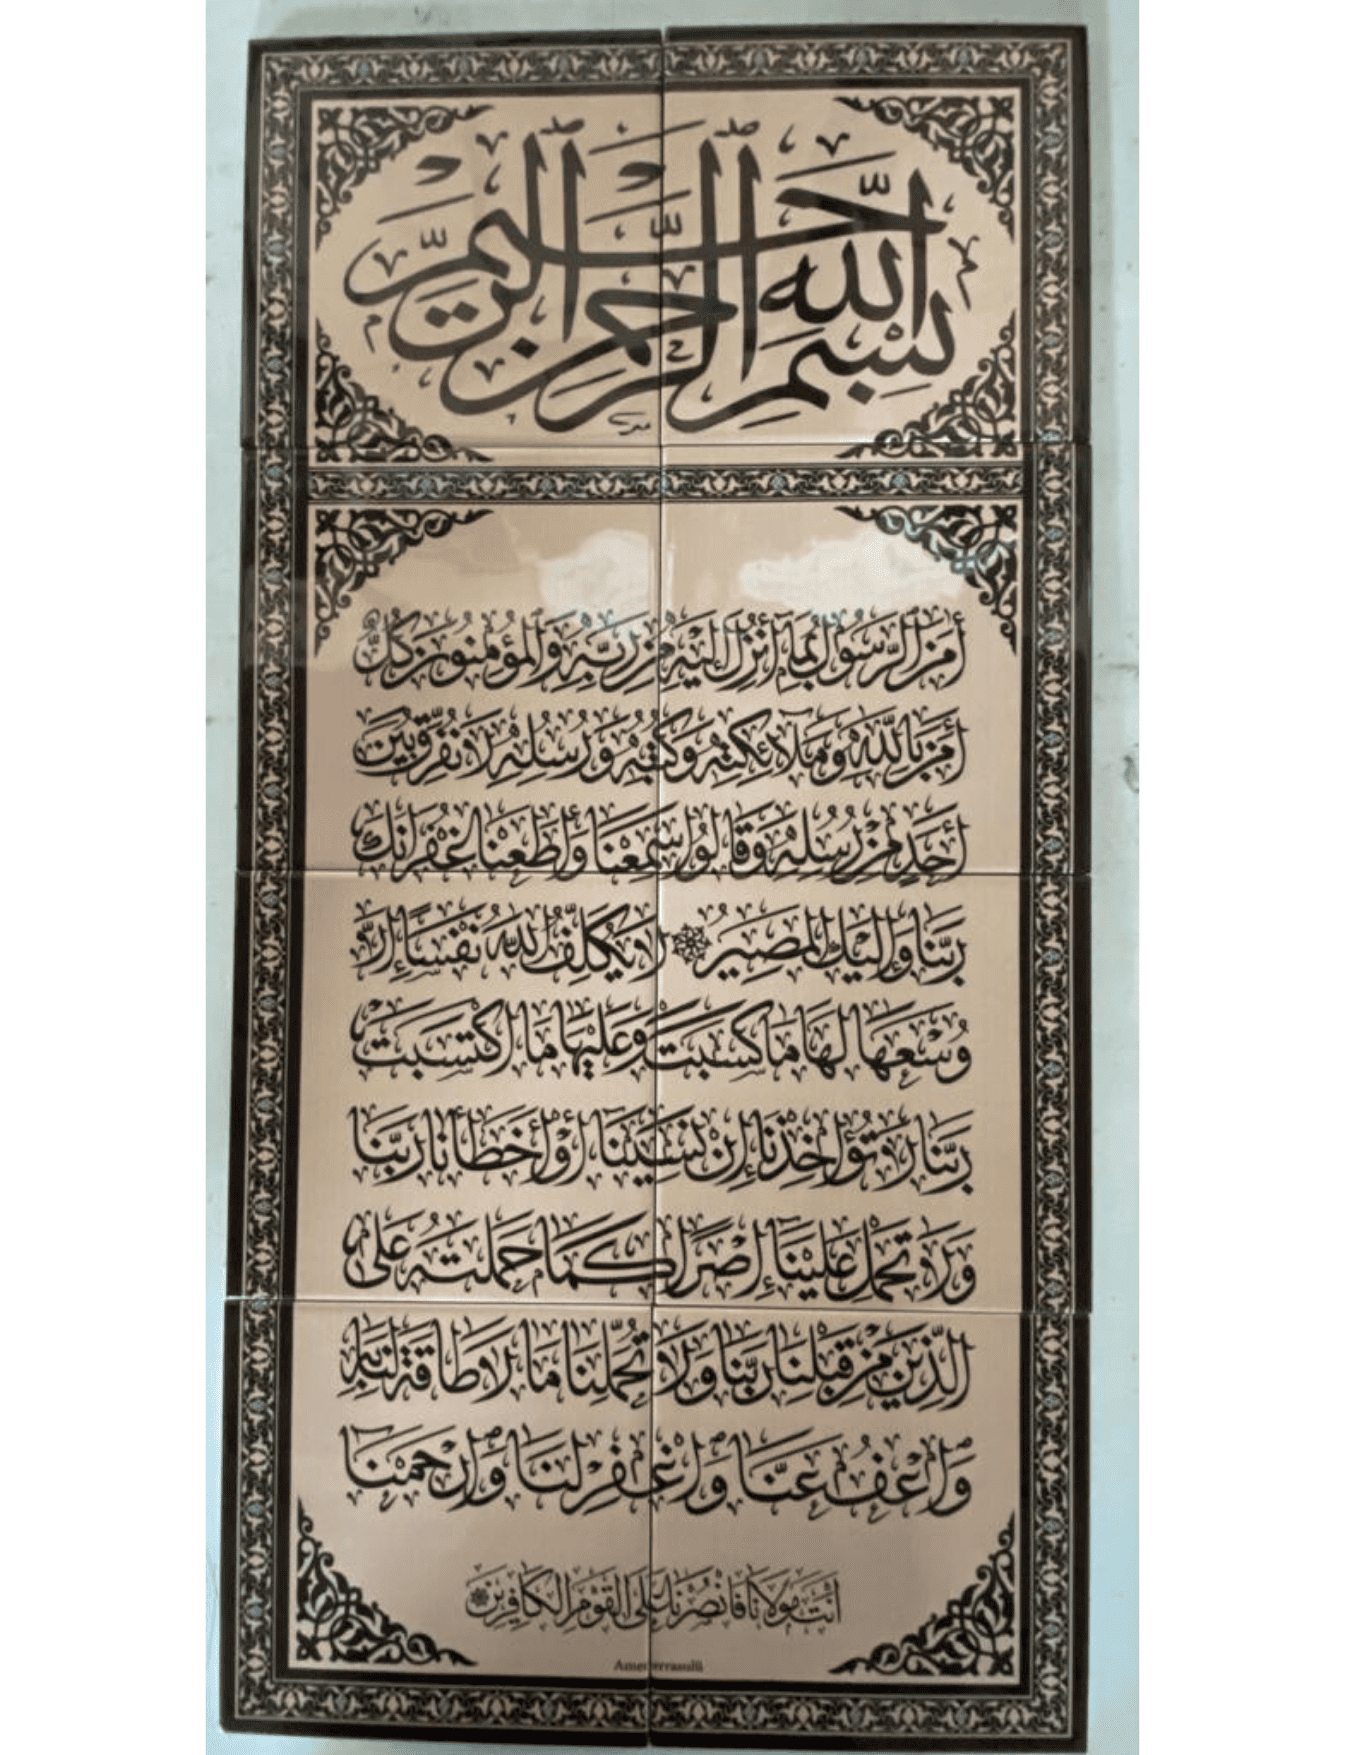 بِسْمِ اللَّهِ الرَّحْمَٰنِ الرَّحِيمِ
أمَنَ الرَّسُولُ بِمَا أُنْزِلَ إِلَيْهِ مِنْ رَبِّهِ وَالْمُؤْمِنُونَ كُلٌّ
أمَنَ بِاللَّهِ وَمَلَآئِكَتِهِ وَكُتُبِهِ وَرُسُلِهِ لَا نُفَرِّقُ بَيْنَ
أَحَدٍ مِنْ رُسُلِهِ وَقَالُوا سَمِعْنَا وَأَطَعْنَا غُفْرَانَكَ
رَبَّنَا وَإِلَيْكَ الْمَصِيرُ ۞ لَا يُكَلِّفُ اللَّهُ نَفْسًا إِلَّا
وُسْعَهَا لَهَا مَا كَسَبَتْ وَعَلَيْهَا مَا اكْتَسَبَتْ
رَبَّنَا لَا تُؤَاخِذْنَا إِنْ نَسِينَا أَوْ أَخْطَأْنَا رَبَّنَا
وَلَا تَحْمِلْ عَلَيْنَا إِصْرًا كَمَا حَمَلْتَهُ عَلَى
الَّذِينَ مِنْ قَبْلِنَا رَبَّنَا وَلَا تُحَمِّلْنَا مَا لَا طَاقَةَ لَنَا بِهِ
وَاعْفُ عَنَّا وَاغْفِرْ لَنَا وَارْحَمْنَا
أَنْتَ مَوْلَانَا فَانْصُرْنَا عَلَى الْقَوْمِ الْكَافِرِينَ ۞
Amenerrasulü